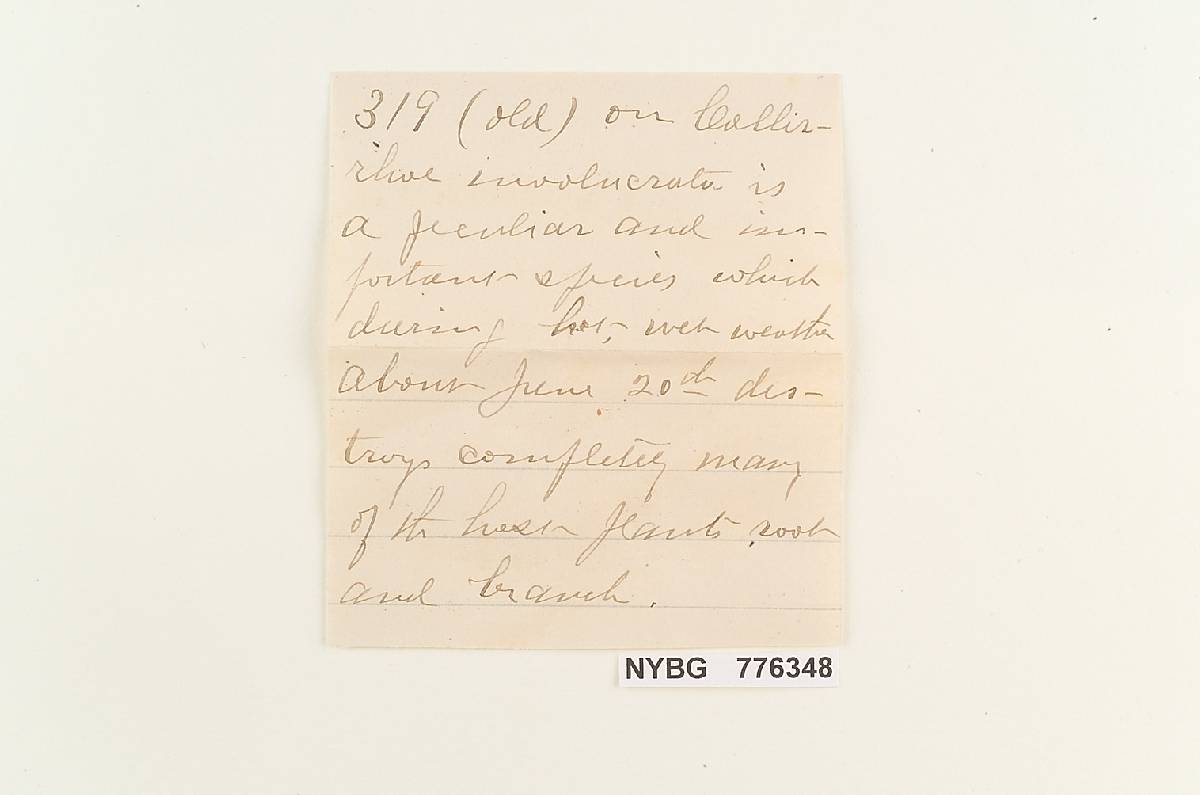 319 (old) on Callir-
rhoe involucrata is
a peculiar and im-
portant species which
during hot, wet weather
about June 20th des-
troys completely many
of the host plants root
and branch.
NYBG 776348